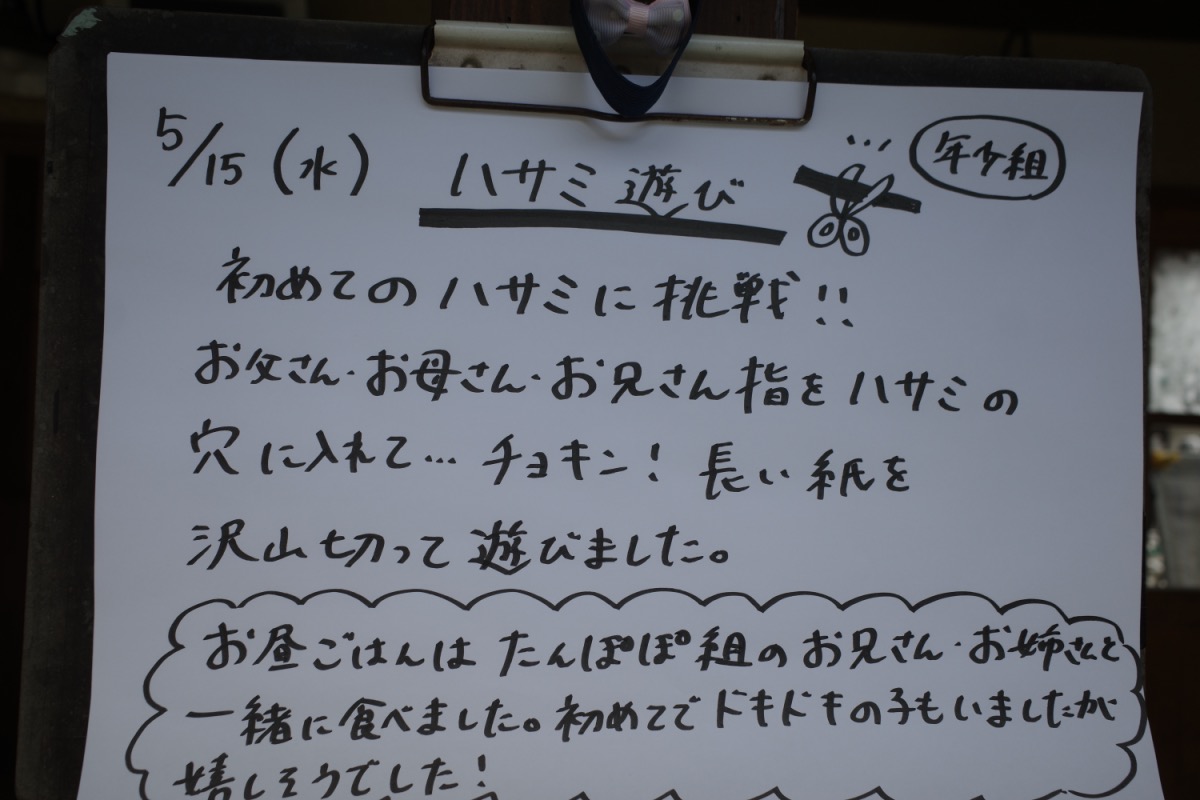 5/15(水) ハサミ遊び 年少組
初めてのハサミに挑戦!!
お父さん・お母さん・お兄さん指をハサミの
穴に入れて…チョキン!長い紙を
沢山切って遊びました。
お昼ごはんはたんぽぽ組のお兄さん・お姉さんと
一緒に食べました。初めてでドキドキの子もいましたが
嬉しそうでした!